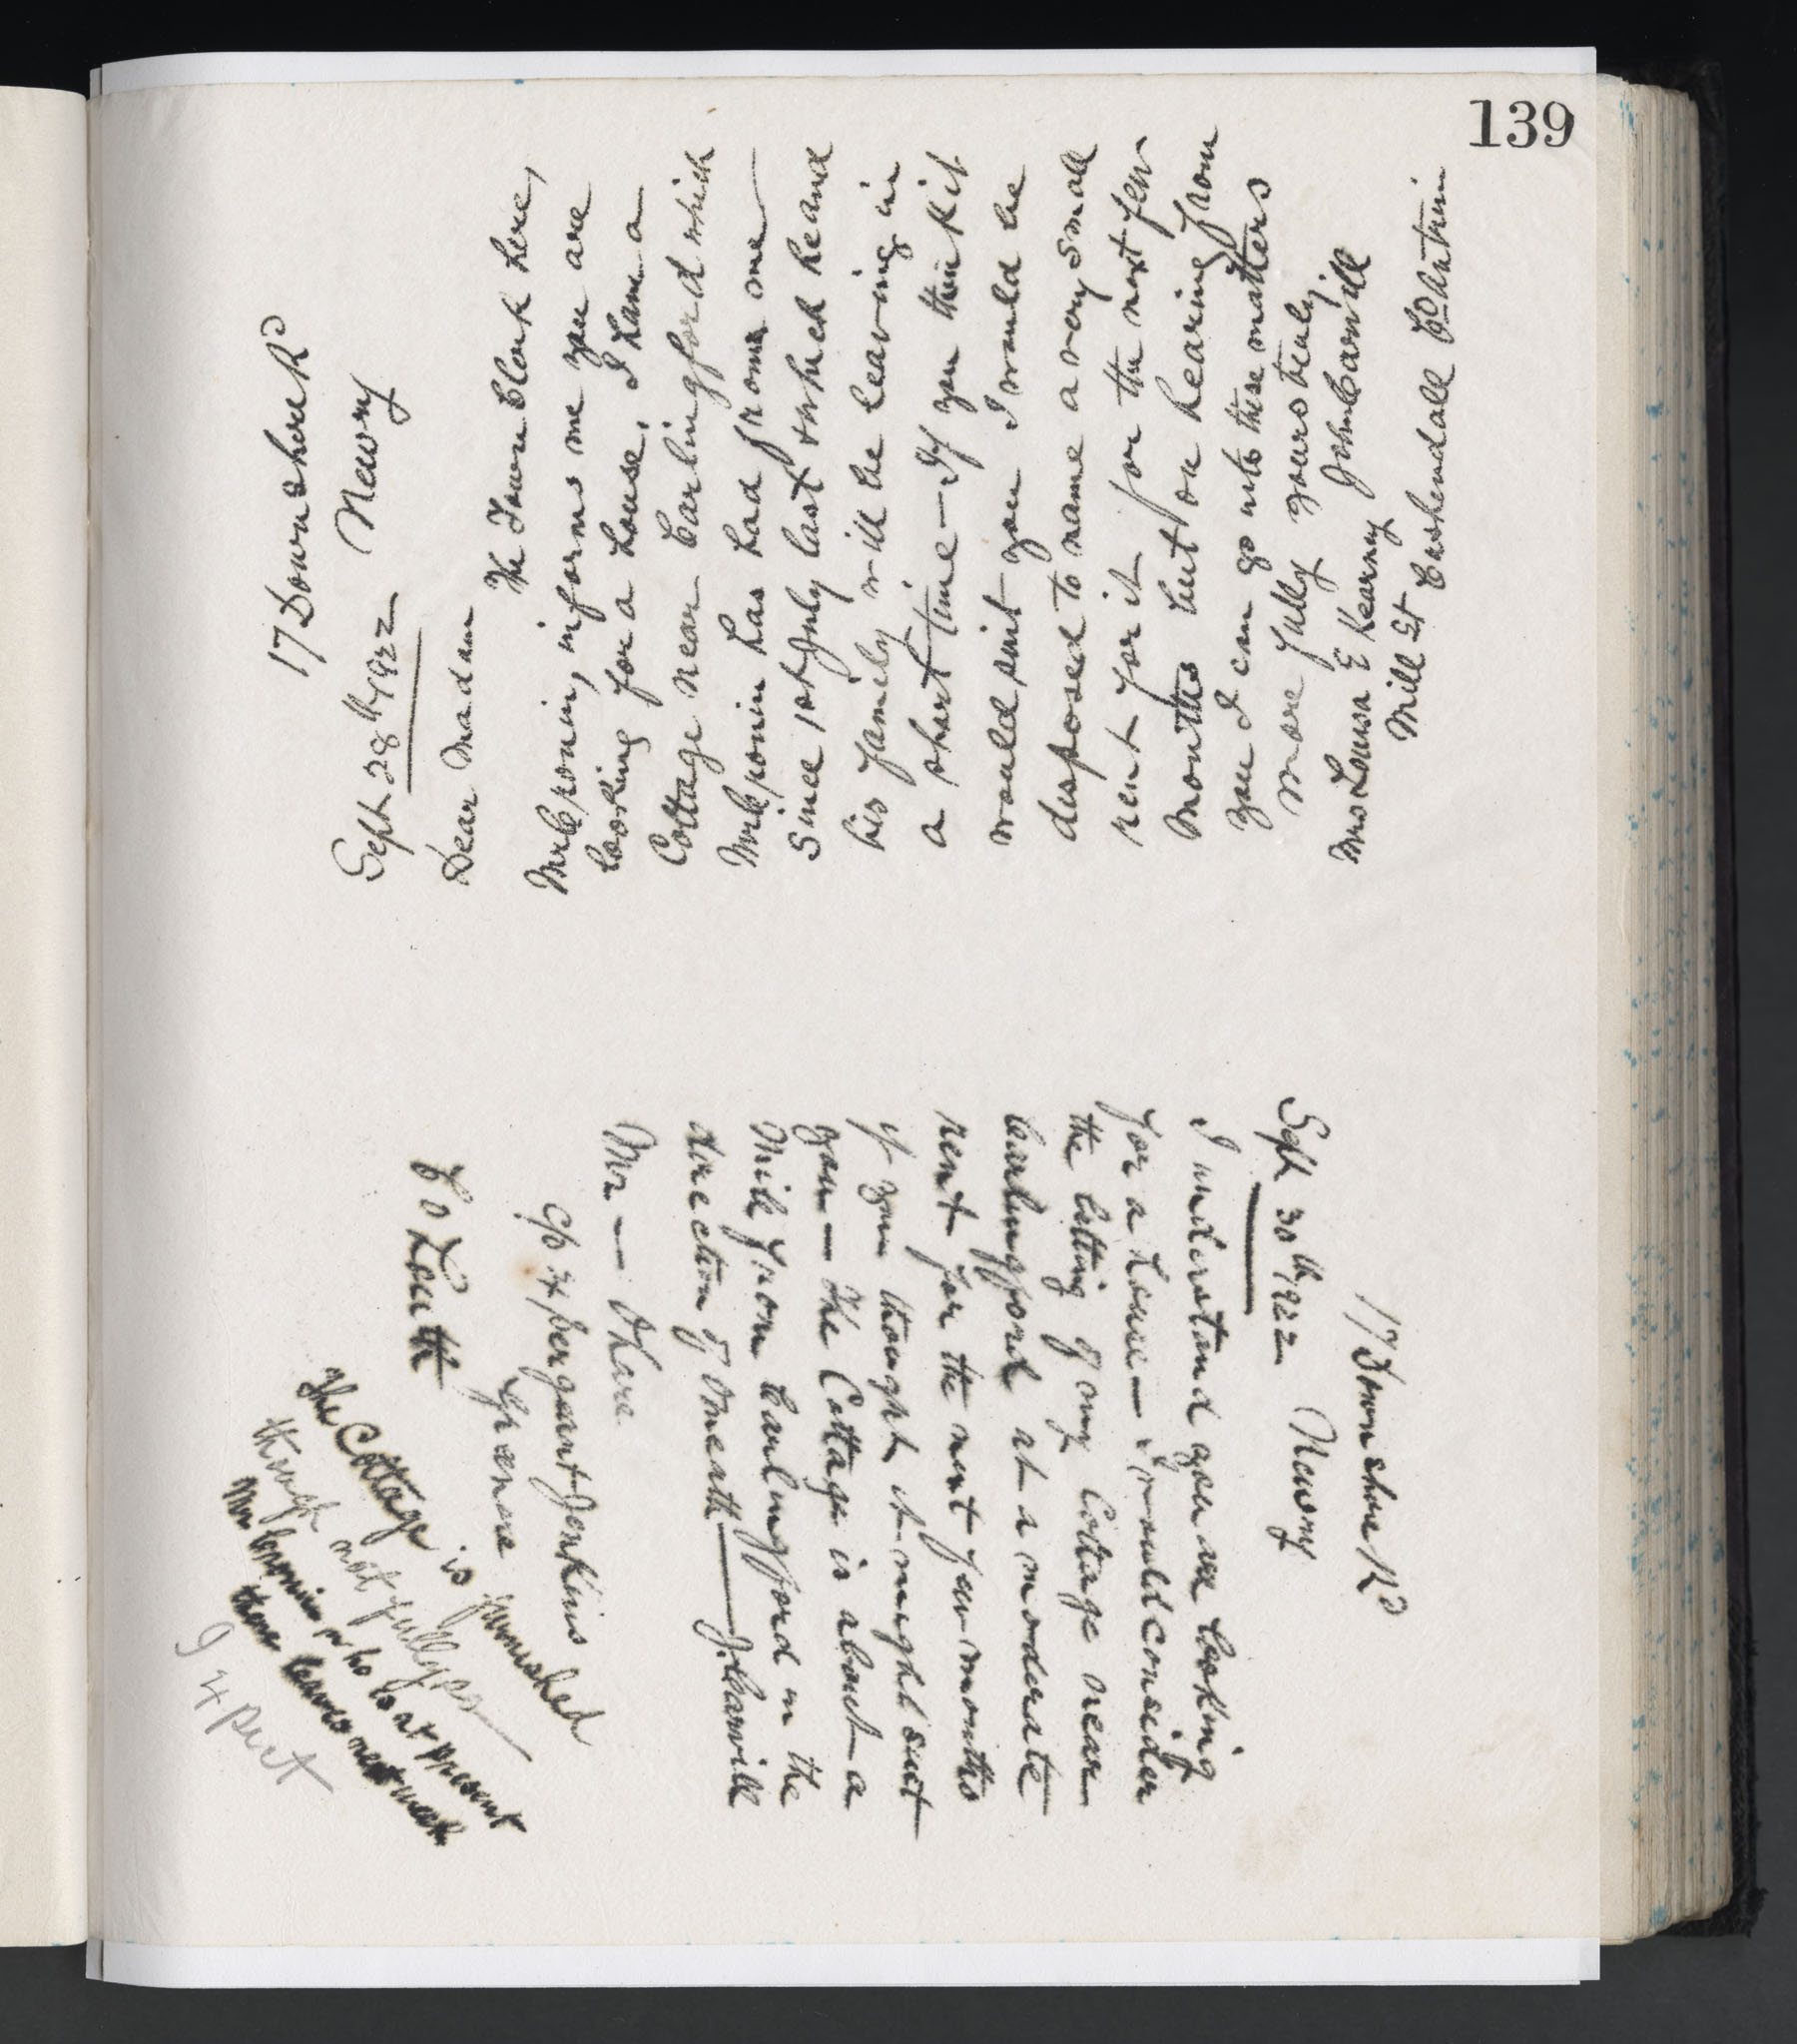 139
17 Downshire Rd
Newry
Sept 28th 1922
Dear Madam
The Town Clerk here,
Mr Cronin, informs me you are
looking for a house. I have a
Cottage near Carlingford which
Mr Cronin has had from me
since 1st July last & which he and
his family will be leaving in
a short time — If you think it
would suit you I would be
disposed to name a very small
rent for it for the next few
months but on hearing from
you I can go into these matters
more fully yours truly
John Carvill
Mrs Louisa E Kearney
Mill St Cushendall Co Antrim
17 Downshire Rd
Sept 30th 1922 Newry
I understand you are looking
for a house — I would consider
the letting of my Cottage near
Carlingford at a moderate
rent for the next few months
if you thought it might suit
you — The Cottage is about a
mile from Carlingford in the
direction of Omeath — J. Carvill
Mr — O'Hare
c/o Sergeant Jenkins
Greenore
Co Louth
The Cottage is furnished
though not fully so
Mr Cronin who is at present
there leaves next week